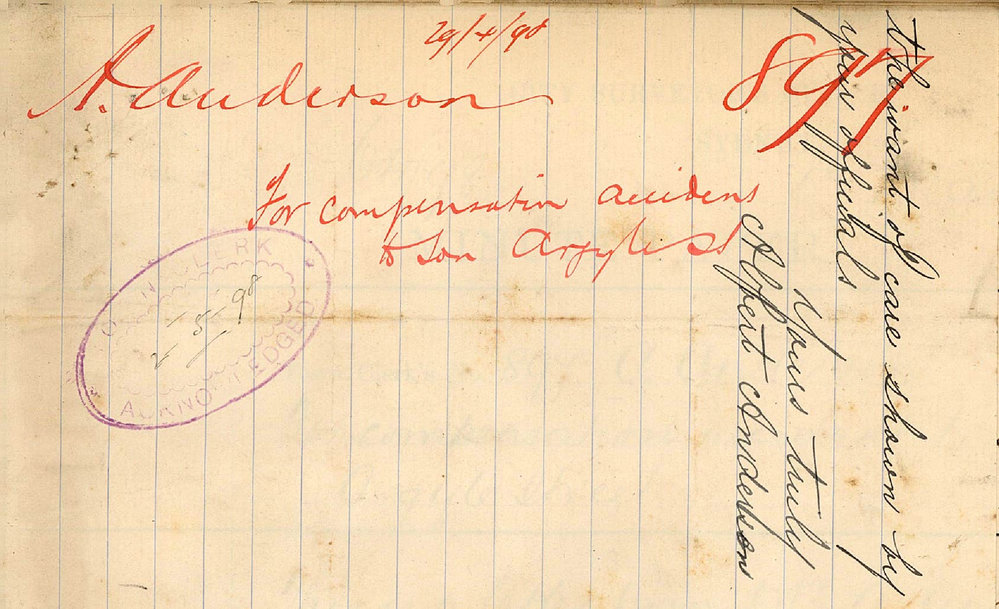 29/4/98
A. Anderson
897
For compensation accident
to son Argyle St
CLERK
2-5-98
ACKNOWLEDGED
the want of care shown by
your officials
Yours truly
Albert Anderson